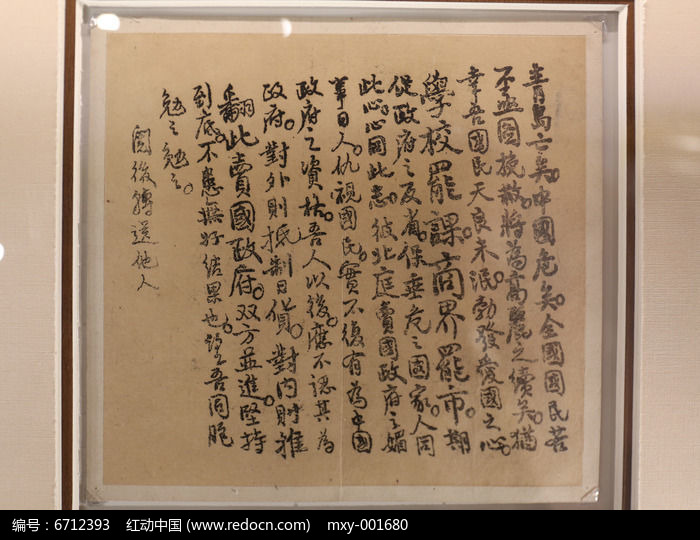 青島亡矣。中國危矣。全國國民若
不亟圖挽救。將為高麗之續矣。猶
幸吾國民天良未泯。勃發愛國之心。
學校罷課。商界罷市。期
促政府之反省。保垂危之國家。人同
此心。心同此志。彼北庭賣國政府之媚
事日人。仇視國民。實不復有為中國
政府之資格。吾人以後應不認其為
政府。對外則抵制日貨。對內則推
翻此賣國政府。双方並進。堅持
到底。不患無好結果也。望吾同胞
勉之勉之。
閱後轉送他人
编号：6712393 红动中国 (www.redocn.com) mxy-001680